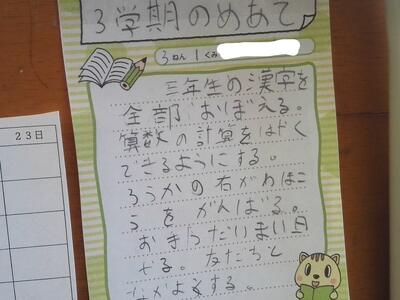 3学期のめあて
3ねん1くみ
三年生の漢字を
全部おぼえる。
算数の計算をはやく
できるようにする。
ろうかの右がわほこ
うをがんばる。
おきうだいまい日
やる。友だちと
なかよくする。
23日